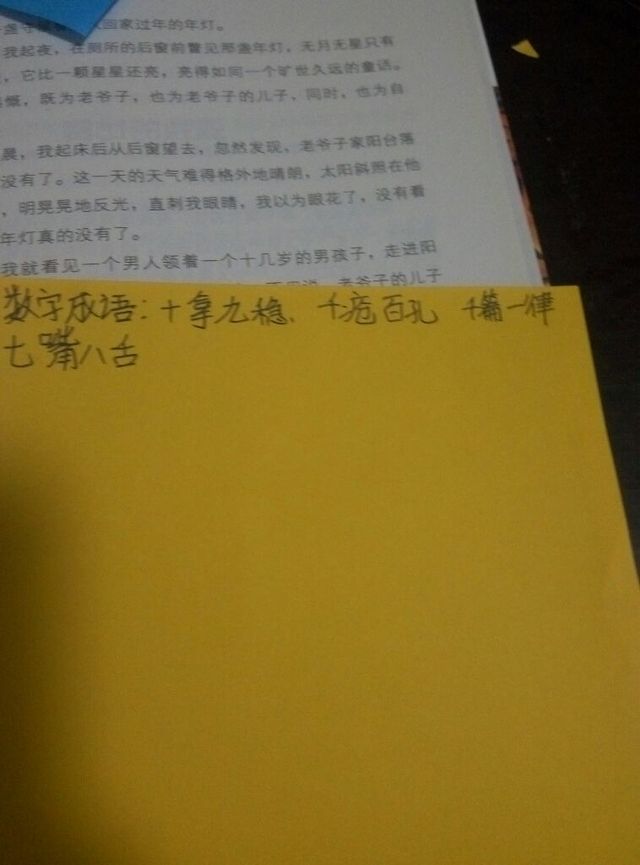 回家过年的年灯。
我起夜，在厕所的后窗前瞥见那盏年灯，无月无星只有
，它比一颗星星还亮，亮得如同一个旷世久远的童话。
慨，既为老爷子，也为老爷子的儿子，同时，也为自
晨，我起床后从后窗望去，忽然发现，老爷子家阳台落
没有了。这一天的天气难得格外地晴朗，太阳斜照在他
，明晃晃地反光，直刺我眼睛，我以为眼花了，没有看
年灯真的没有了。
我就看见一个男人领着一个十几岁的男孩子，走进阳
老爷子的儿子
数字成语：十拿九稳、千疮百孔 千篇一律
七嘴八舌